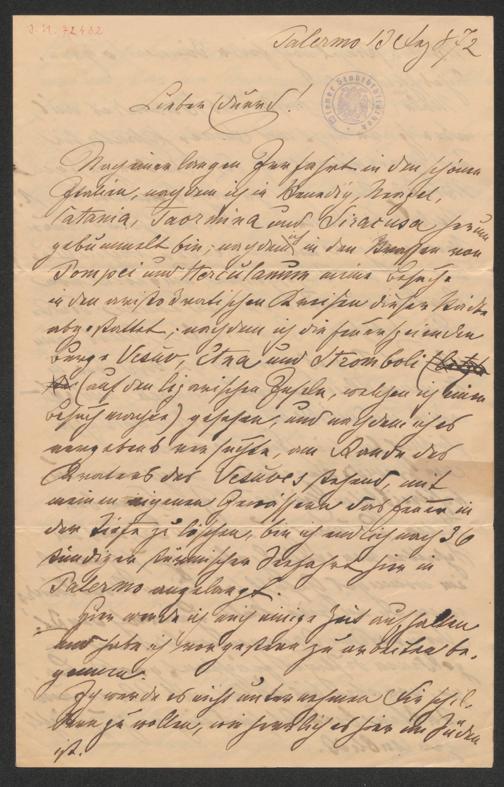 J. N. 72482
Palermo 13 Aug 872
Wiener Stadtbibliothek
Lieber Freund!
Nach einer langen Irrfahrt in dem schönen
Italien, nachdem ich in Venedig, Neapel,
Catania, Taormina und Siracusa herum
gebummelt bin; nachdem ich in den Strassen von
Pompei und Herculanum meine Besuche
in den aristokratischen Kreisen dieser Städte
abgestattet; nachdem ich die feuerspeienden
Berge Vesuv, Etna und Stromboli
(auf den liparischen Inseln, welchen ich einen
Besuch machte) gesehen, und nachdem ich es
vergebens versuchte, am Rande des
Kraters des Vesuves stehend, mit
meinen eigenen Gewässern das Feuer in
der Tiefe zu löschen, bin ich endlich nach 36
stündiger stürmischer Seefahrt hier in
Palermo angelangt.
Hier werde ich mich einige Zeit aufhalten
und habe ich vorgestern zu arbeiten be-
gonnen.
Ich werde es nicht unternehmen Dir schil-
dern zu wollen, wie herrlich es hier im Süden
ist.